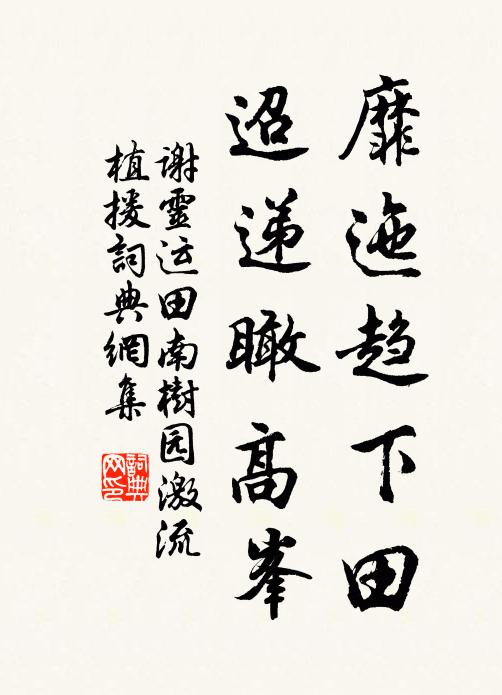 靡迤趋下田
迢递瞰高峯
谢灵运田南树园激流
植援词典网集
词典网印